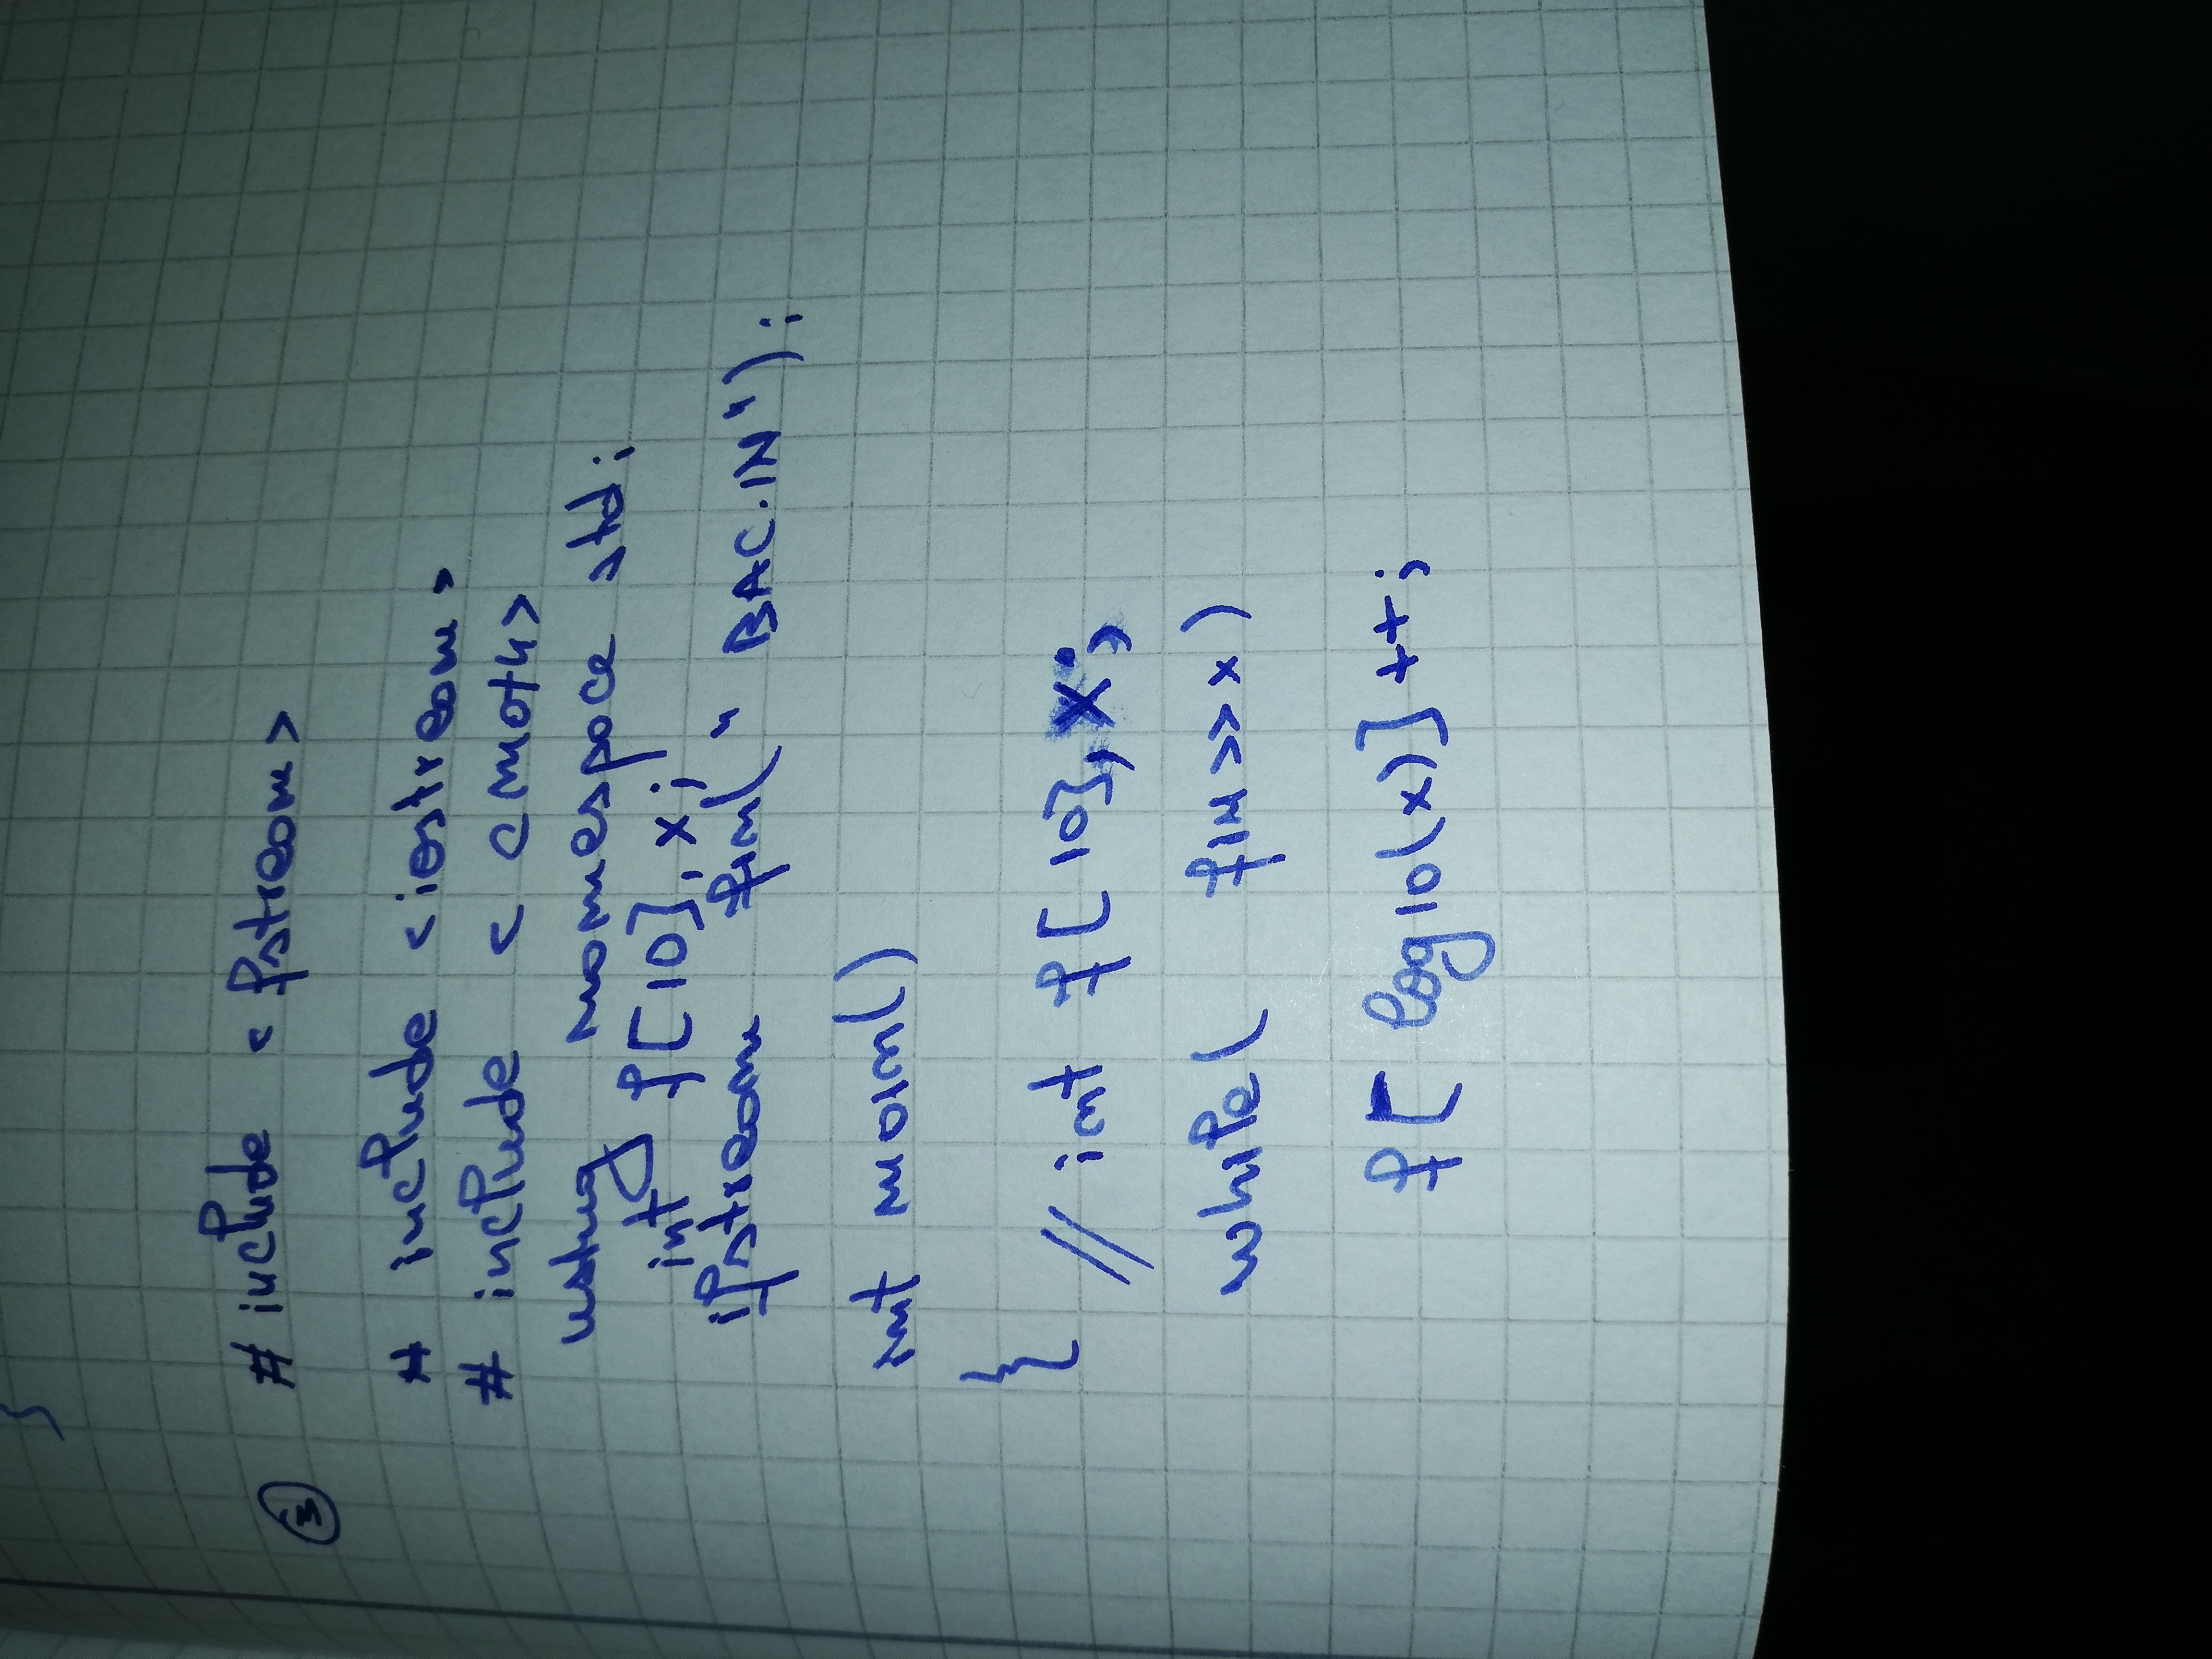 }
③ # include <fstream>
# include <iostream>
# include <cmath>
using namespace std;
int f[10], x;
ifstream fin("BAC.IN");
int main()
{
// int f[10], x;
while( fin>>x)
f[log10(x)]++;